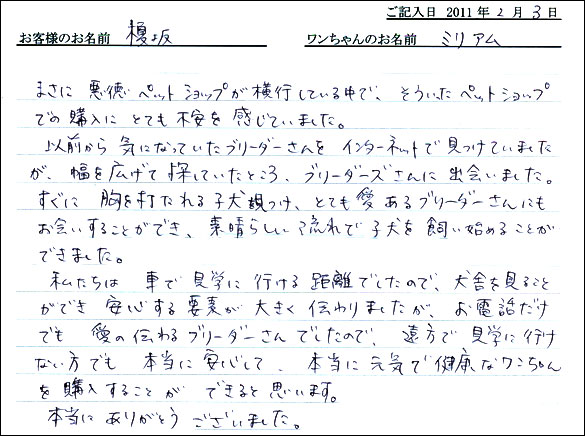 ご記入日 2011年 2月 3日
お客様のお名前 榎坂 ワンちゃんのお名前 ミリアム
まさに 悪徳 ペットショップが 横行している中で、そういったペットショップ
での購入に とても 不安を 感じていました。
以前から 気になっていたブリーダーさんを インターネットで 見つけていました
が、幅を広げて 探していたところ、ブリーダーズさんに 出会いました。
すぐに 胸を打たれる子犬見つけ、とても 愛あるブリーダーさんにも
お会いすることができ、素晴らしい 流れで 子犬を 飼い始めることが
できました。
私たちは 車で 見学に 行ける 距離でしたので、犬舎を見ること
ができ 安心する 要素が 大きく 伝わりましたが、お電話だけ
でも 愛の伝わるブリーダーさん でしたので、遠方で 見学に行け
ない方でも 本当に 安心して、本当に 元気で 健康なワンちゃん
を 購入することが できると 思います。
本当に ありがとう ございました。